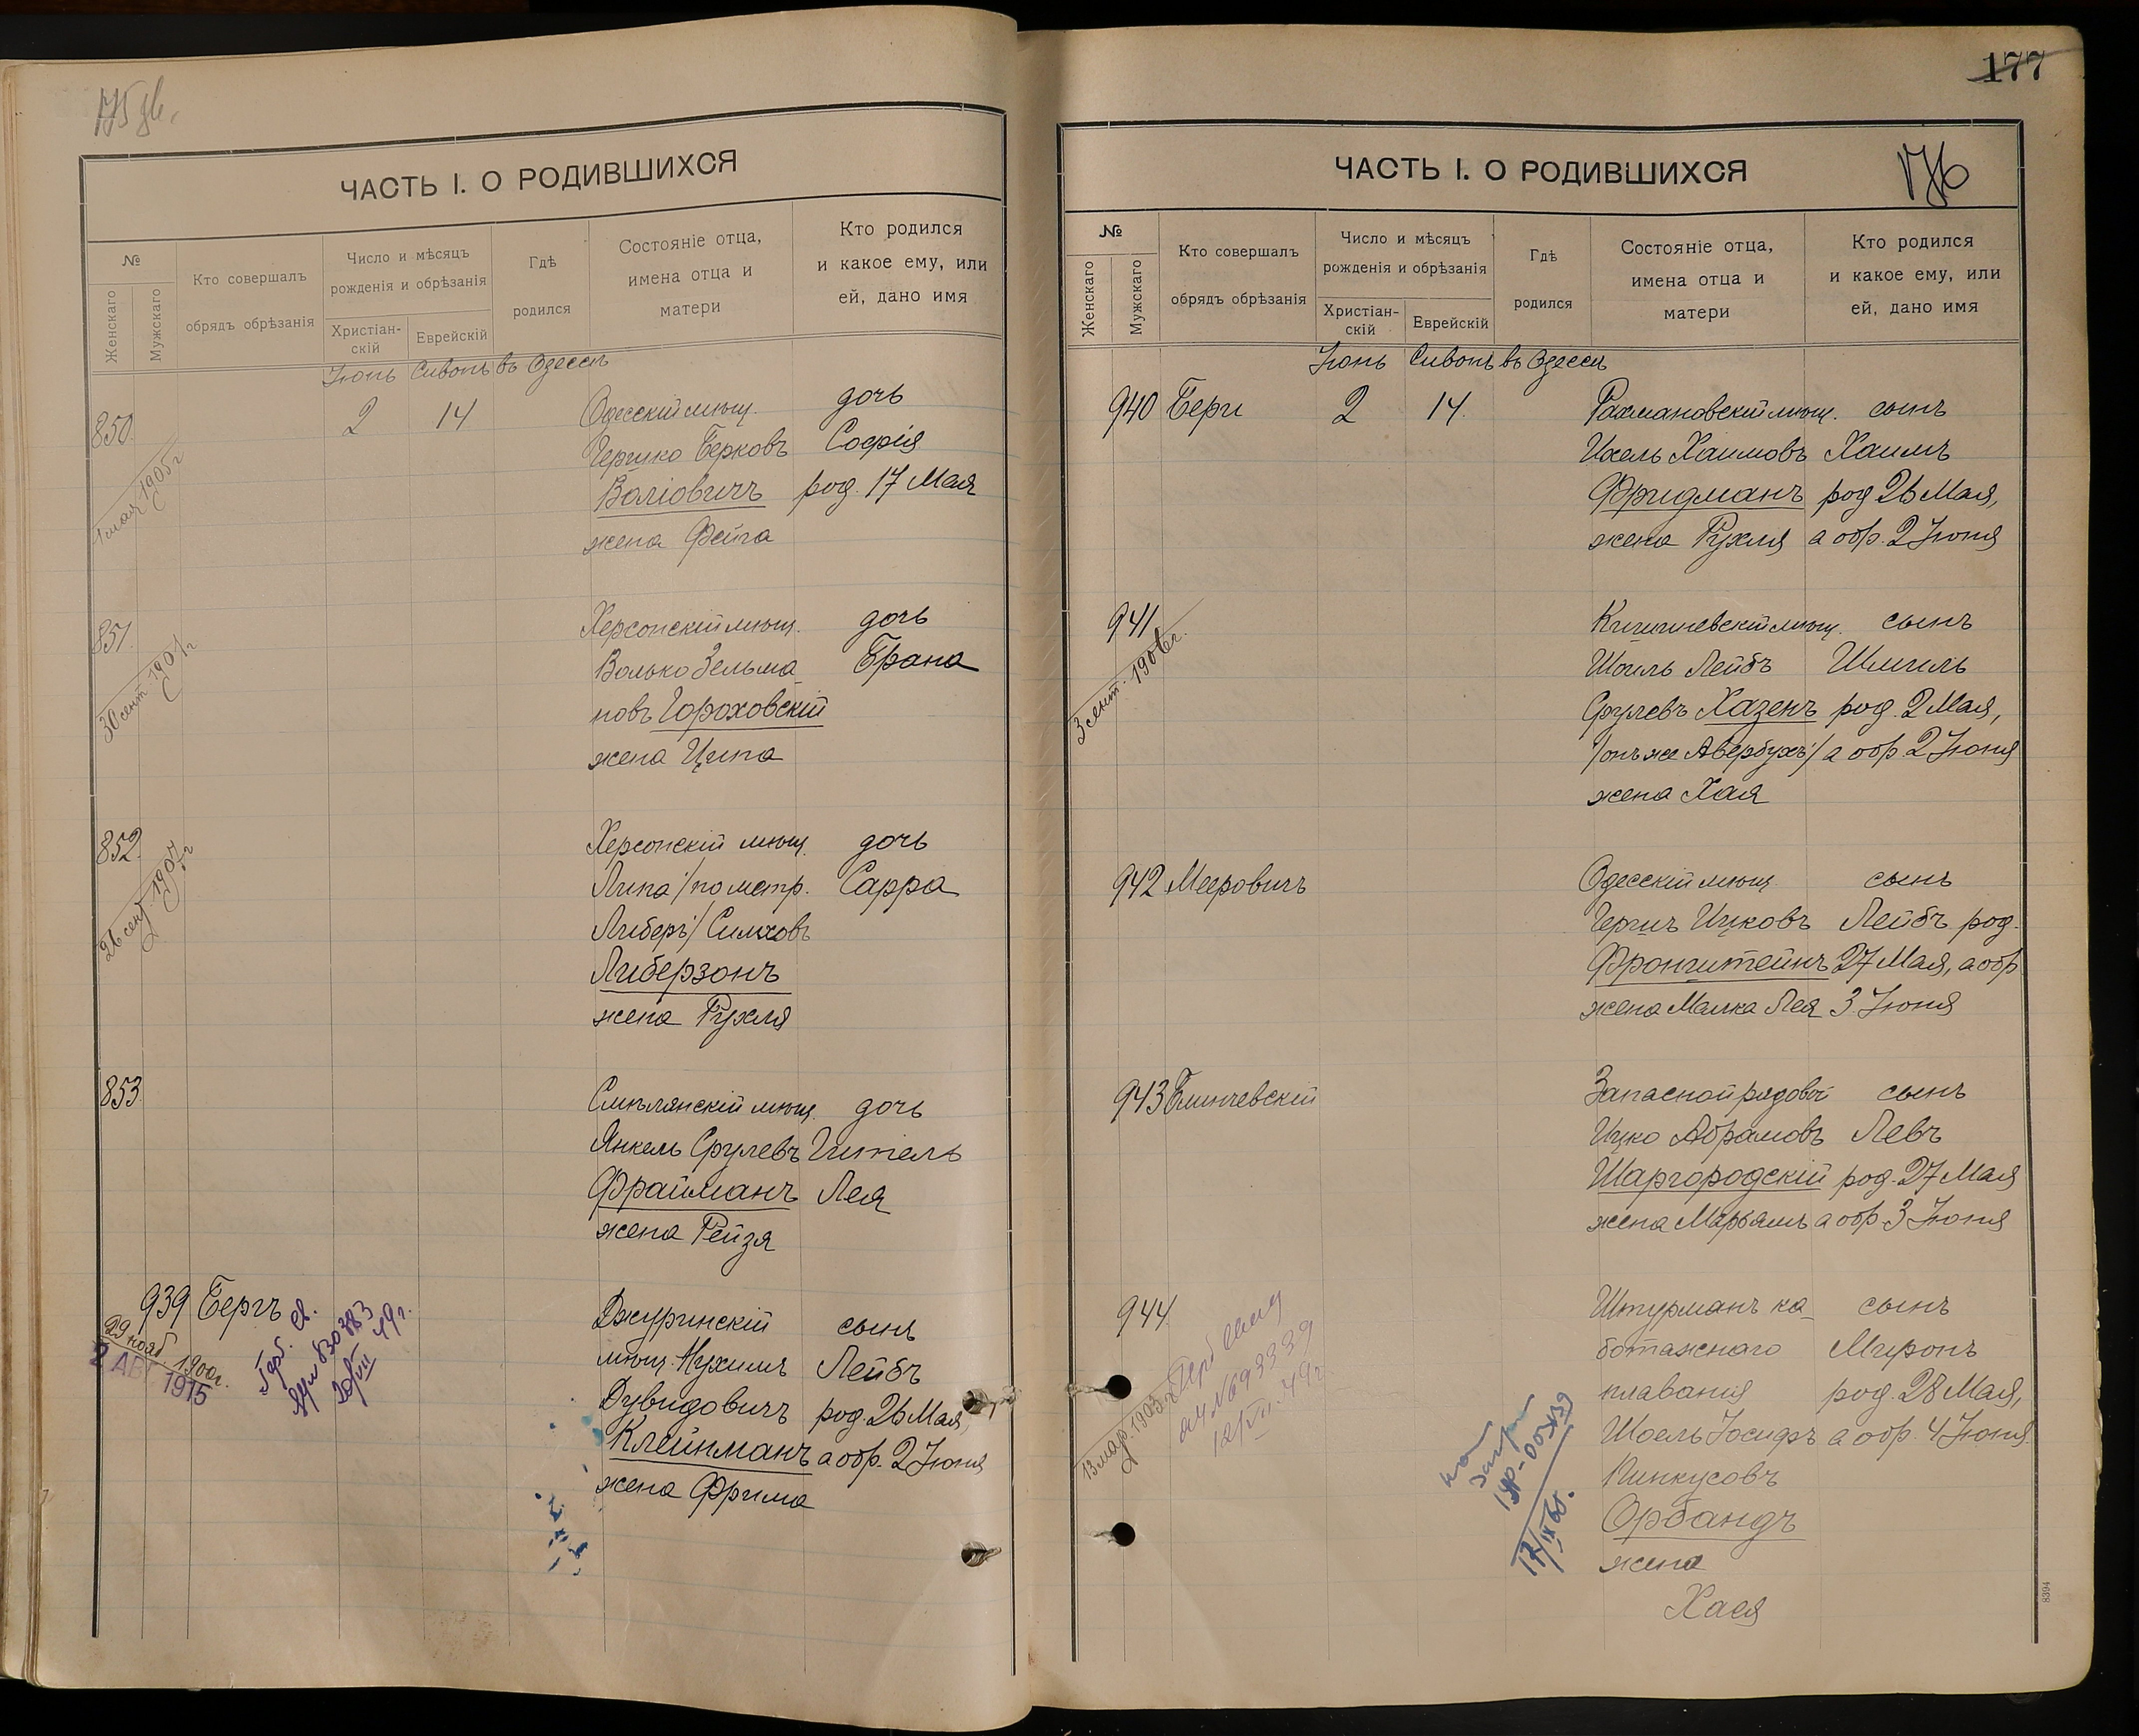 175 об.
ЧАСТЬ I. О РОДИВШИХСЯ
№
Женскаго
Мужскаго
Кто совершалъ
обрядъ обрѣзанія
Число и мѣсяцъ
рожденія и обрѣзанія
Христіан-
скій
Еврейскій
Гдѣ
родился
Состояніе отца,
имена отца и
матери
Кто родился
и какое ему, или
ей, дано имя
Іюнь Сивонъ въ Одессѣ
850. 2 14 Одесскій мѣщ. дочь
Гершко Берковъ Софія
Воліовичъ род. 17 Мая
жена Фейга
1 мая 1905 г
851. Херсонскій мѣщ. дочь
Волько Зельма- Брана
новъ Гороховскій
жена Ципа
30 сент. 1901 г
852. Херсонскій мѣщ. дочь
Липа /по метр. Сарра
Либеръ/ Симховъ
Либерзонъ
жена Рухля
26 сент. 1907 г
853. Смѣлянскій мѣщ. дочь
Янкель Срулевъ Гитель
Фрайманъ Лея
жена Рейзя
939 Бергъ Джуринскій сынъ
мѣщ. Нухимъ Лейбъ
Дувидовичъ род. 26 Мая,
Клейнманъ а обр. 2 Іюня
жена Фрима
29 нояб 1900 г.
2 АВГ 1915
Герб. св.
830783
49 г.
177
ЧАСТЬ I. О РОДИВШИХСЯ
176
№
Женскаго
Мужскаго
Кто совершалъ
обрядъ обрѣзанія
Число и мѣсяцъ
рожденія и обрѣзанія
Христіан-
скій
Еврейскій
Гдѣ
родился
Состояніе отца,
имена отца и
матери
Кто родился
и какое ему, или
ей, дано имя
Іюнь Сивонъ въ Одессѣ
940 Берг 2 14. Рахмановскій мѣщ. сынъ
Ихель Хаимовъ Хаимъ
Фридманъ род 26 Мая,
жена Рухля а обр. 2 Іюня
941 Кишиневскій мѣщ. сынъ
Шоиль Лейбъ Шмиль
Срулевъ Хазенъ род. 2 Мая,
/онъ же Авербухъ/ а обр. 2 Іюня
жена Хая
3 сент. 1906 г.
942 Мееровичъ Одесскій мѣщ. сынъ
Гершъ Ицковъ Лейбъ род.
Фронштейнъ 27 Мая, а обр
жена Малка Лея 3 Іюня
943 Блинчевскій Запасной рядовой сынъ
Ицко Абрамовъ Левъ
Шаргородскій род. 27 Мая
жена Марьямъ а обр 3 Іюня
944 Штурманъ ка- сынъ
ботажнаго Миронъ
плаванія род. 28 Мая,
Шоель Іосифъ а обр. 4 Іюня.
Пинкусовъ
Орбандъ
жена
Хася
13 мар. 1903 г
№ 693339
12/VII 49 г
17/IX 60.
8394